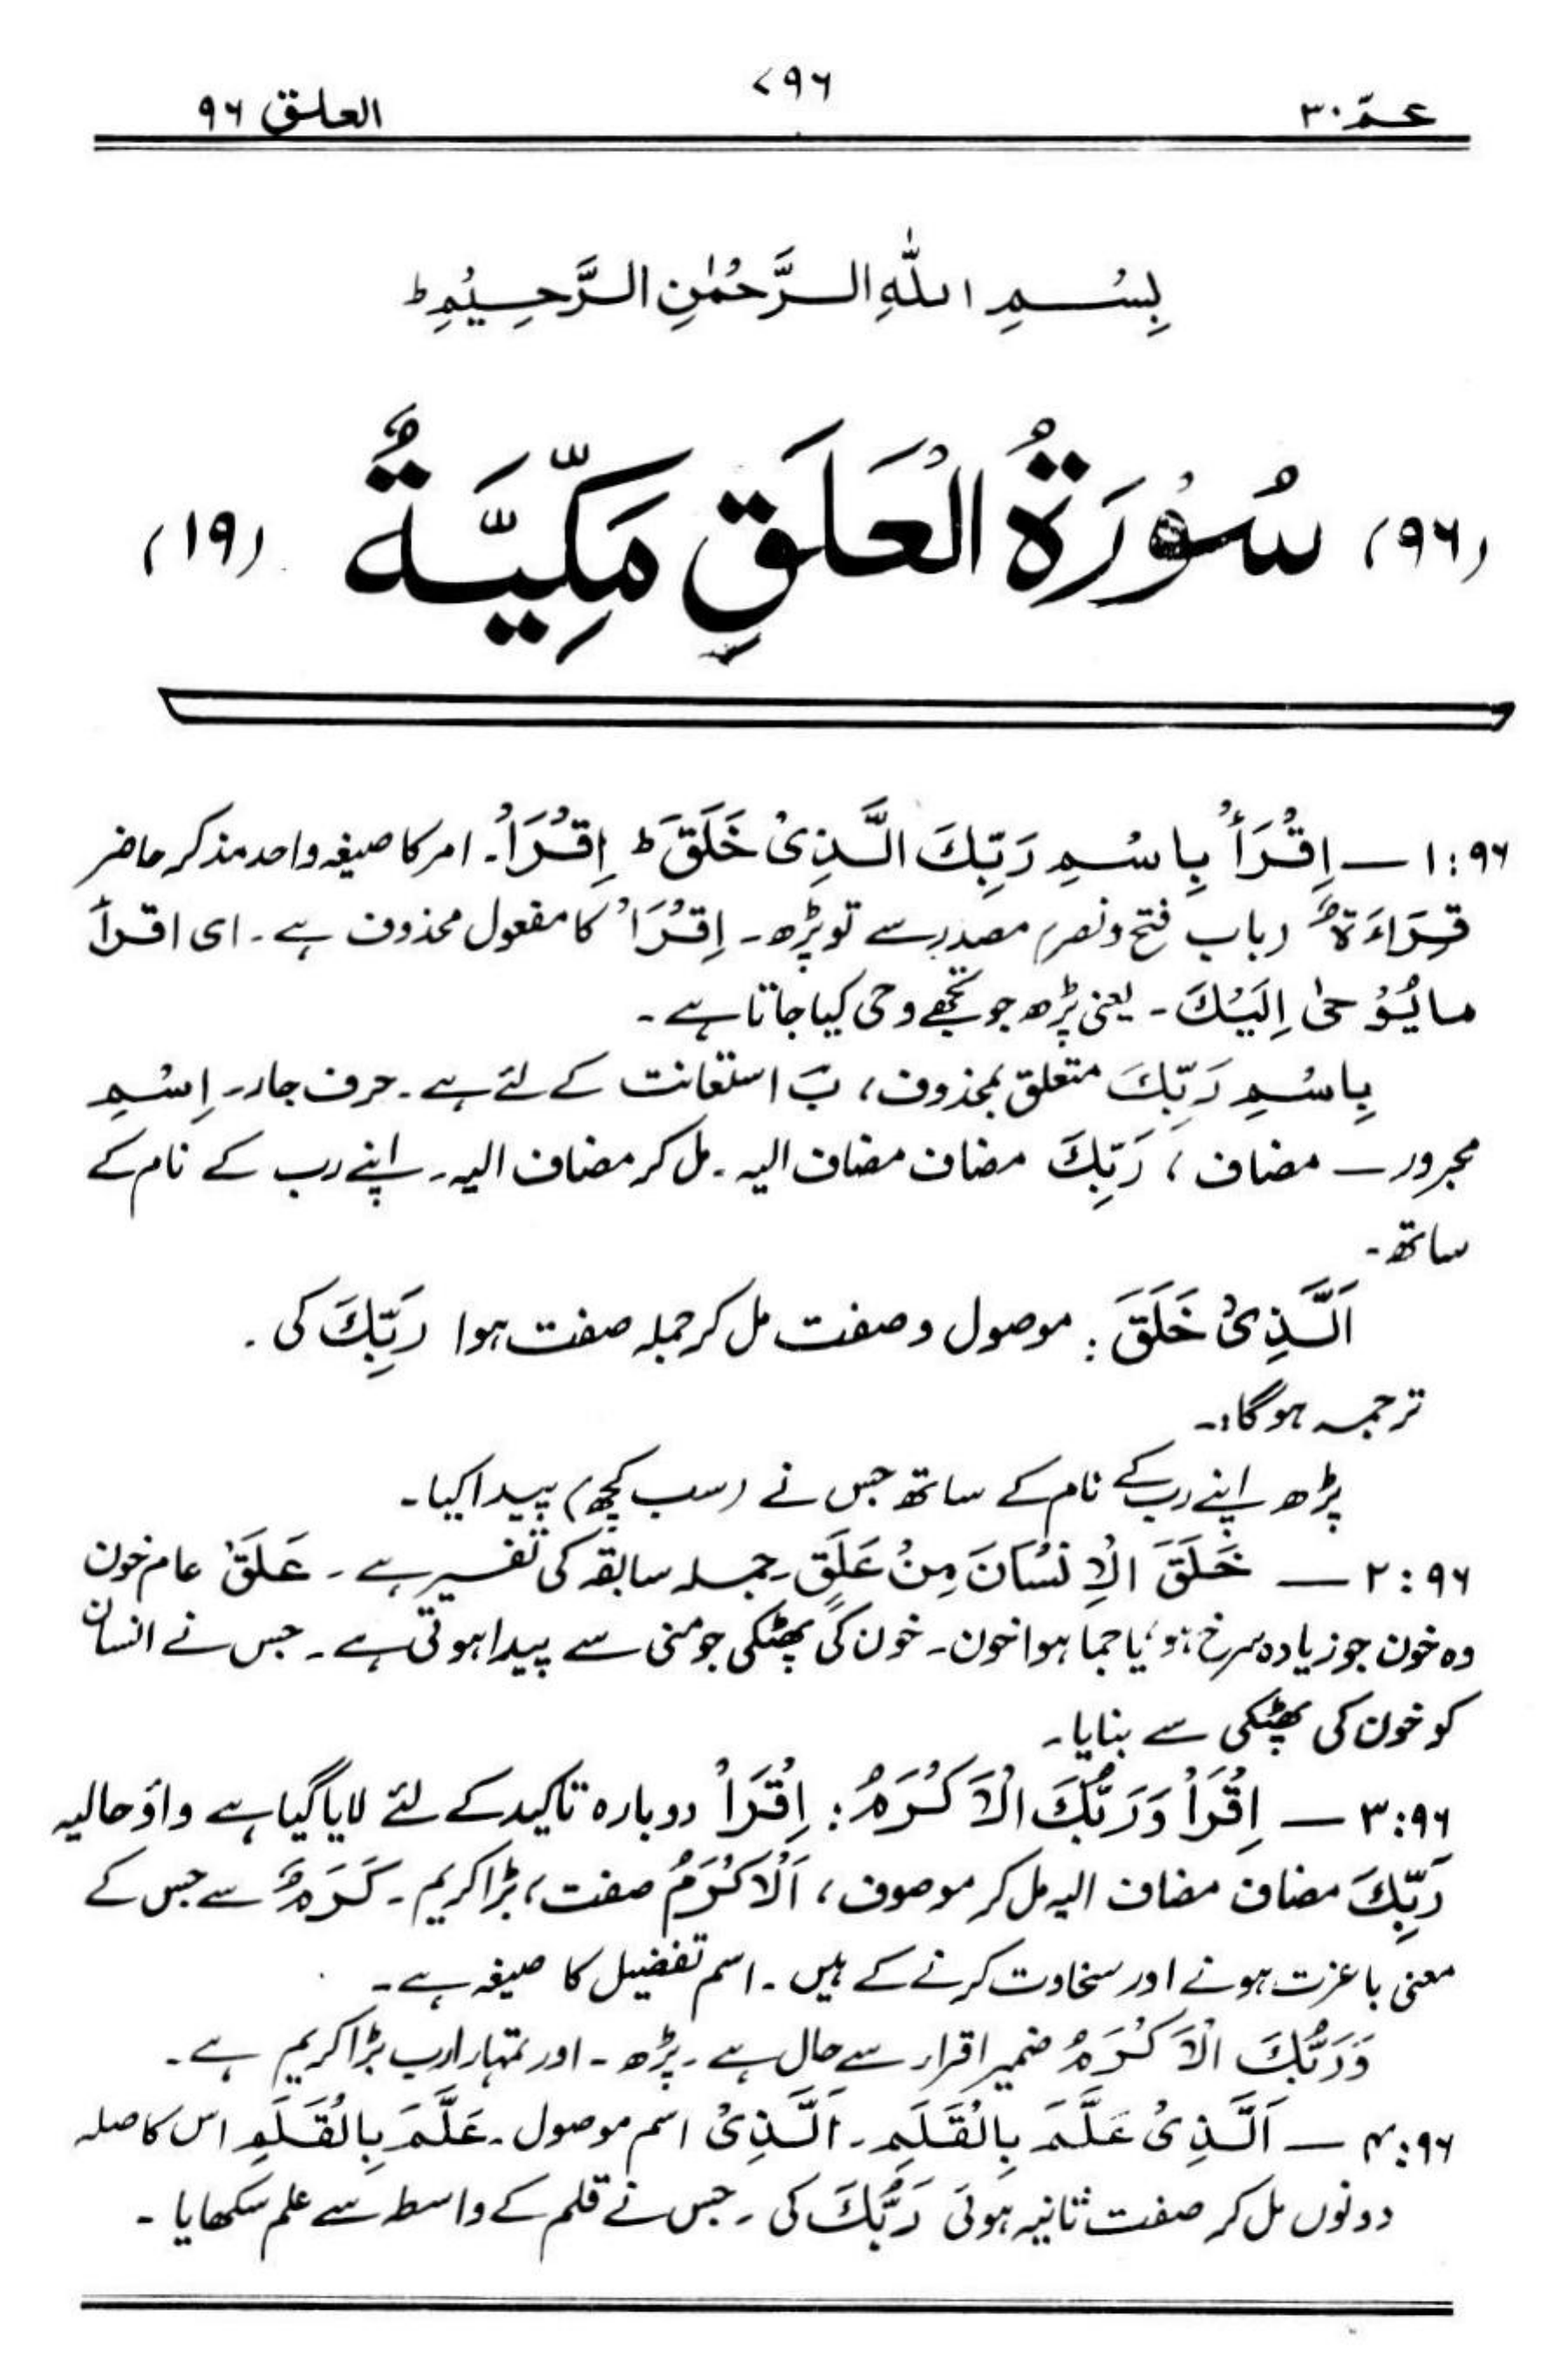 عمّ ٣٠
٧٩٦
العلق ٩٦
بِسْمِ اللّٰهِ الرَّحْمٰنِ الرَّحِيْمِ ط
(٩٦) سُوْرَةُ الْعَلَقِ مَكِّيَّةٌ (١٩)
٩٦:١ — اِقْرَأْ بِاسْمِ رَبِّكَ الَّذِىْ خَلَقَ ط اِقْرَاْ۔ امر کا صیغہ واحد مذکر حاضر
قِرَاءَةٌ (باب فتح و نصر) مصدر سے تو پڑھ۔ اِقْرَاْ کا مفعول محذوف ہے۔ ای اقرأ
ما يُوْحىٰ اِلَيْكَ۔ یعنی پڑھ جو تجھے وحی کیا جاتا ہے۔
بِاسْمِ رَبِّكَ متعلق بمحذوف، بَ استعانت کے لئے ہے۔ حرف جار۔ اِسْمِ
مجرور — مضاف، رَبِّكَ مضاف مضاف الیہ۔ مل کر مضاف الیہ۔ اپنے رب کے نام کے
ساتھ۔
اَلَّذِىْ خَلَقَ: موصول و صفت مل کر جملہ صفت ہوا رَبِّكَ کی۔
ترجمہ ہوگا:۔
پڑھ اپنے رب کے نام کے ساتھ جس نے (سب کچھ) پیدا کیا۔
٩٦:٢ — خَلَقَ الْاِنْسَانَ مِنْ عَلَقٍ۔ جملہ سابقہ کی تفسیر ہے۔ عَلَقْ عام خون
وہ خون جو زیادہ سرخ ہو، یا جما ہوا خون۔ خون کی پھٹکی جو منی سے پیدا ہوتی ہے۔ جس نے انسان
کو خون کی پھٹکی سے بنایا۔
٩٦:٣ — اِقْرَاْ وَرَبُّكَ الْاَكْرَمُ: اِقْرَاْ دوبارہ تاکید کے لئے لایا گیا ہے واؤ حالیہ
رَبِّكَ مضاف مضاف الیہ مل کر موصوف، اَلْاَكْرَمُ صفت، بڑا کریم۔ كَرَمٌ سے جس کے
معنی با عزت ہونے اور سخاوت کرنے کے ہیں۔ اسم تفضیل کا صیغہ ہے۔
وَرَبُّكَ الْاَكْرَمُ ضمیر اقرار سے حال ہے۔ پڑھ۔ اور تمہارا رب بڑا کریم ہے۔
٩٦:۴ — اَلَّذِىْ عَلَّمَ بِالْقَلَمِ۔ اَلَّذِىْ اسم موصول۔ عَلَّمَ بِالْقَلَمِ اس کا صلہ
دونوں مل کر صفت ثانیہ ہوئی رَبُّكَ کی۔ جس نے قلم کے واسطہ سے علم سکھایا۔